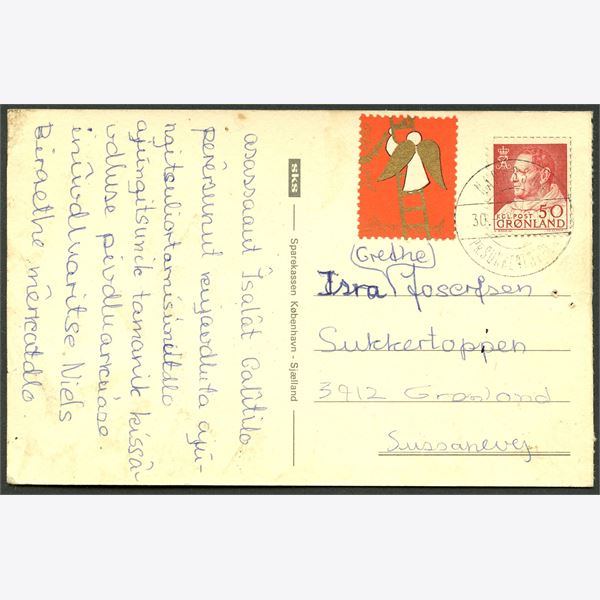 asassaaut Îsalât Calitilo
perersunut kujavdluta ajú-
ngitsuliortarnisínitdlo
ajúngitsumik tamanik kíssâ
vdluse pivdluarkuáse.
inûvdluaritse Niels
Birgethe mêrkatdlo
sks
Sparekassen København - Sjælland
KGL. POST 50
GRØNLAND
30.
(Grethe)
Isra Josefsen
Sukkertoppen
3912 Grønland
Sussanevej